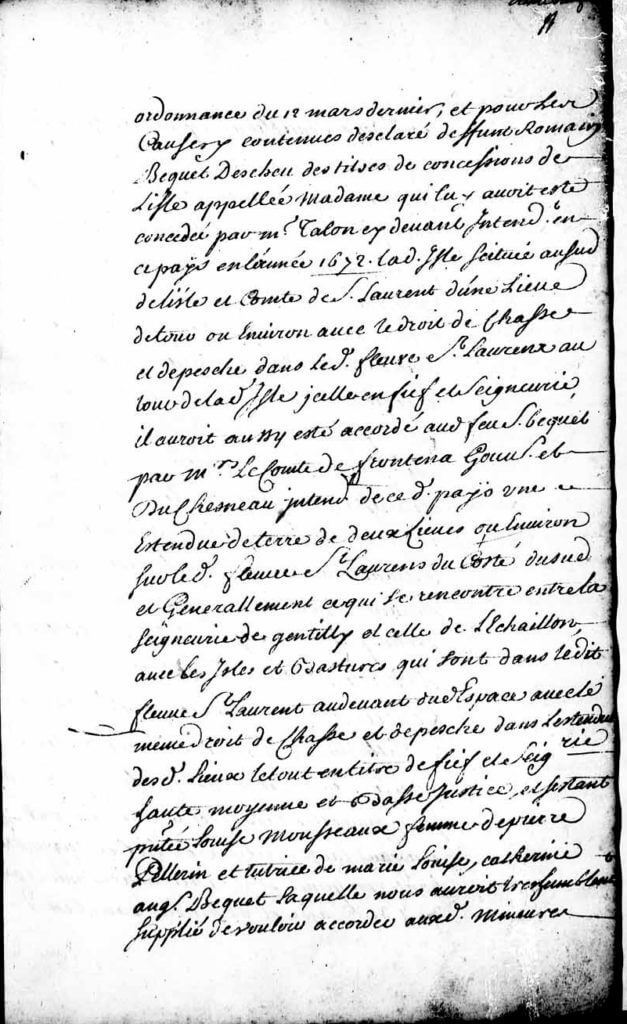 ordonnance du 12 mars dernier, et pour les
Causes y contenues desclaré deffunt Romain
Bequet Descheu des tiltres de concessions de
Lisle appellée Madame qui luy auroit esté
concedée par mr. Talon cy devant Intendt. en
ce pays en lannée 1672. lad. Isle scituée au sud
de lisle et Comté de St. Laurent d'une Lieue
de tour ou Environ avec le droit de Chasse
et de pesche dans led. fleuve St. Laurent au
tour de lad. Isle jcelle en fief et Seigneurie
il auroit aussy esté accordé aud feu Sr. bequet
par mrs. Le Comte de frontena Gouvr. et
Du Chesneau jntendt de ce d. pays une
Estendue de terre de deux Lieues ou Environ
sur le d. fleuve St. Laurens du Costé du sud
et Generallement ce qui se rencontre entre la
seigneurie de gentilly et celle de L'Echaillon,
avec les Isles et Bastures qui sont dans ledit
fleuve St. Laurent au devant dud Espace avec le
même droit de Chasse et de pesche dans Lestendue
desd. Lieux le tout en titre de fief et Seigrie
haute moyenne et Basse Justice, et sestant
pntée Louise Mousseaux femme de pierre
Pellerin et tutrice de marie Louise, catherine
ang. Bequet Laquelle nous auroit tres humblemt
supplié de vouloir accorder auxd. Mineures